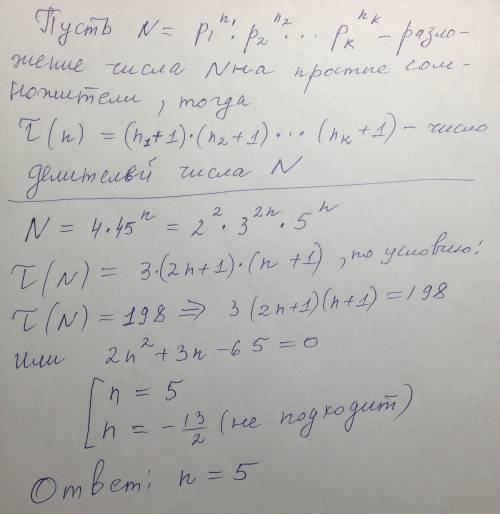 Пусть N = p₁^n₁ · p₂^n₂ · ... p_k^n_k - разло-
жение числа N на простые сом-
ножители, тогда
τ(n) = (n₁+1)·(n₂+1)·...(n_k+1) - число
делителей числа N
N = 4·45^n = 2²·3^2n·5^n
τ(N) = 3·(2n+1)·(n+1), по условию:
τ(N) = 198 ⇒ 3(2n+1)(n+1) = 198
или 2n² + 3n - 65 = 0
[ n = 5
n = -13/2 (не подходит)
Ответ: n = 5